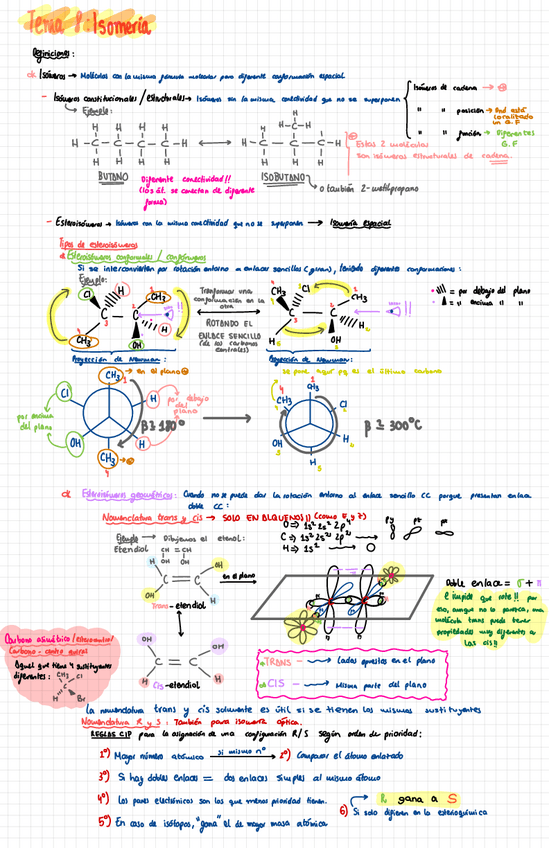 Tema 8: Isomería
Definiciones:
Isómeros → Moléculas con la misma fórmula molecular pero diferente conformación espacial
- Isómeros constitucionales / estructurales → Isómeros con la misma conectividad que no se superponen
Isómeros de cadena →
" " posición → Ind. está localizado un G.F
" " función → Diferentes G.F.
Ejemplo:
H H H H
H - C - C - C - C - H
H H H H
BUTANO
Diferente conectividad!!
(los át. se conectan de diferente forma)
ISOBUTANO
o también 2-metilpropano
Estas 2 moléculas
son isómeros estructurales de cadena.
- Esteroisómeros → Isómeros con la misma conectividad que no se superponen → Isomería espacial
Tipos de esteroisómeros
Esteroisómeros conformales / confórmeros
Si se interconvierten por rotación entorno a enlaces sencillos (giran), teniendo diferente conformaciones:
Ejemplo:
Cl H CH3
C C
CH3 OH H
Transformar una
conformación en la
otra
ROTANDO EL
ENLACE SENCILLO
(de los carbonos
centrales)
= por debajo del plano
= " encima "
Proyección de Newman:
Proyección de Newman:
CH3 → en el plano
se pone aquí pq es el último carbono
Cl H
por encima
del plano
por debajo
del plano
OH H
CH3
β = 180°
CH3
CH3 Cl
OH H
H
β = 300°C
Esteroisómeros geométricos: Cuando no se puede dar la rotación entorno al enlace sencillo CC porque presentan enlace
doble CC:
Nomenclatura trans y cis → SOLO EN ALQUENOS!!
O ⇒ 1s² 2s² 2p⁴
C ⇒ 1s² 2s² 2p²
H ⇒ 1s¹
Ejemplo → Dibujemos el etenol:
Etendiol
CH = CH
OH OH
H OH
C = C
OH H
Trans-etendiol
en el plano
Doble enlace = σ + π
El impide que rote!! por
eso, aunque no lo parezca, una
molécula trans puede tener
propiedades muy diferentes a
las cis!!
Carbono asimétrico / estereocentro /
Carbono - centro quiral
Aquel que tiene 4 sustituyentes
diferentes:
CH3 Cl
C
H Br
OH OH
C = C
H H
Cis-etendiol
TRANS → Lados opuestos en el plano
CIS → Misma parte del plano
La nomenclatura trans y cis solamente es útil si se tienen los mismos sustituyentes
Nomenclatura R y S: También para isomería óptica.
REGLAS CIP para la asignación de una configuración R/S según orden de prioridad:
1º) Mayor número atómico si mismo nº → 2º) Comparar el átomo enlazado
3º) Si hay dobles enlaces = dos enlaces simples al mismo átomo
4º) Los pares electrónicos son los que menos prioridad tienen.
5º) En caso de isótopos, "gana" el de mayor masa atómica
R gana a S
6) Si solo difieren en la estereoquímica